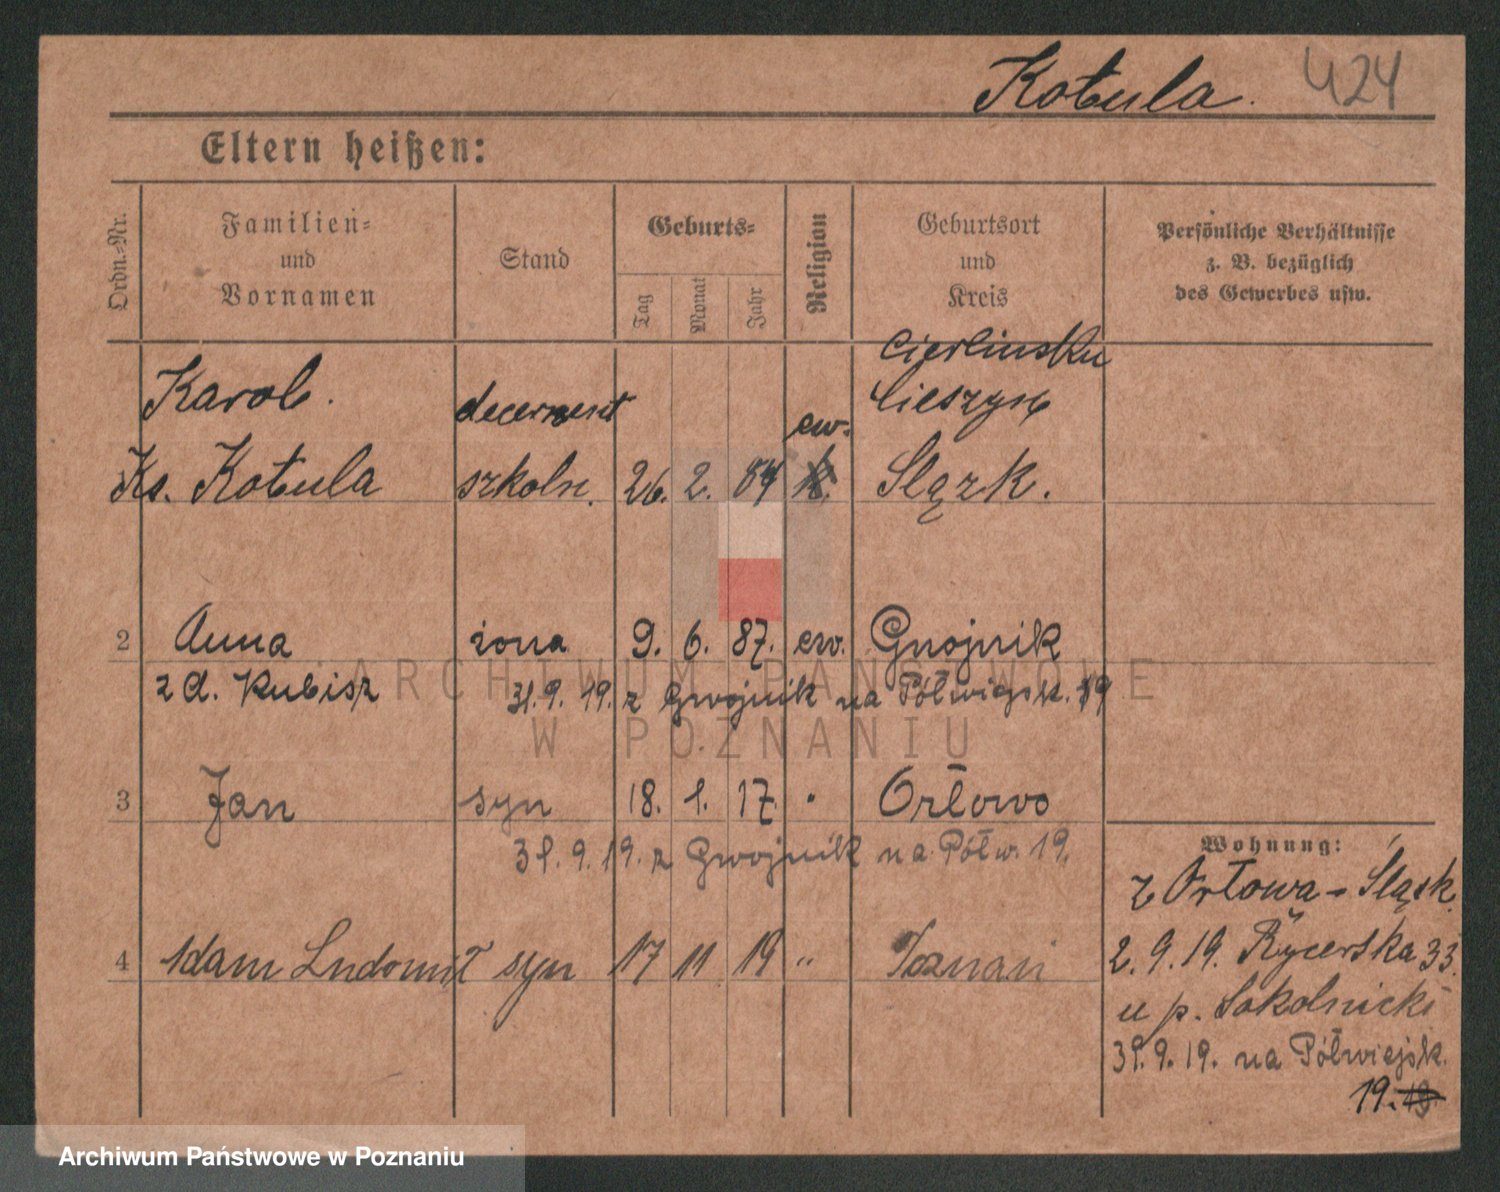 Kotula. 424
Eltern heißen:
Ordn.-Nr.
Familien-
und
Vornamen
Stand
Geburts-
Tag
Monat
Jahr
Religion
Geburtsort
und
Kreis
Persönliche Verhältnisse
z. B. bezüglich
des Gewerbes usw.
Karol. decernent ew. Cieszyn
Ks. Kotula szkoln. 26. 2. 84 Slązk.
2 Anna żona 9. 6. 87. ew. Gnojnik
z d. Kubisz 31. 9. 19. z Gnojnik na Półwiejsk. 19
3 Jan syn 18. 1. 17. " Orłowo
31. 9. 19. z Gnojnik na Półw. 19.
4 Adam Ludomił syn 17 11 19 " Poznań
Wohnung:
z Orłowa - Śląsk.
2. 9. 19. Rycerska 33.
u p. Sokolnicki
31. 9. 19. na Półwiejsk.
19.
ARCHIWUM PAŃSTWOWE
W POZNANIU
Archiwum Państwowe w Poznaniu